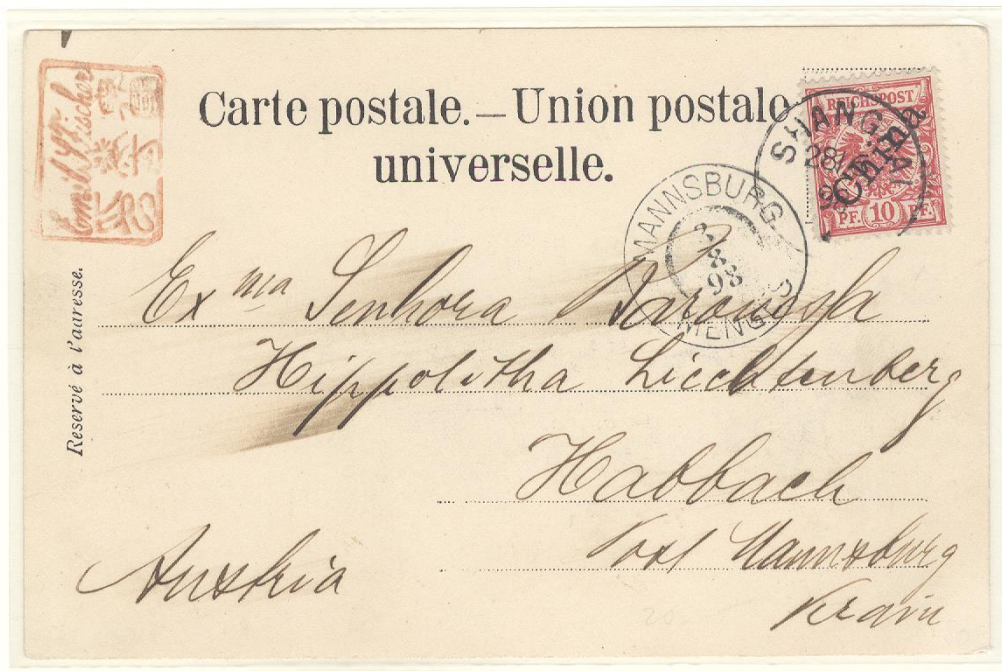 Emil S. Fischer
Carte postale. — Union postale
universelle.
REICHSPOST
China
PF. 10 PF.
SHANGHAI
28
98
MANNSBURG
3
8
98
MENGEŠ
Reservé à l'adresse.
Exma Senhora Baronessa
Hippolitha Liechtenberg
Habbach
Post Mannsburg
Krain
Austria